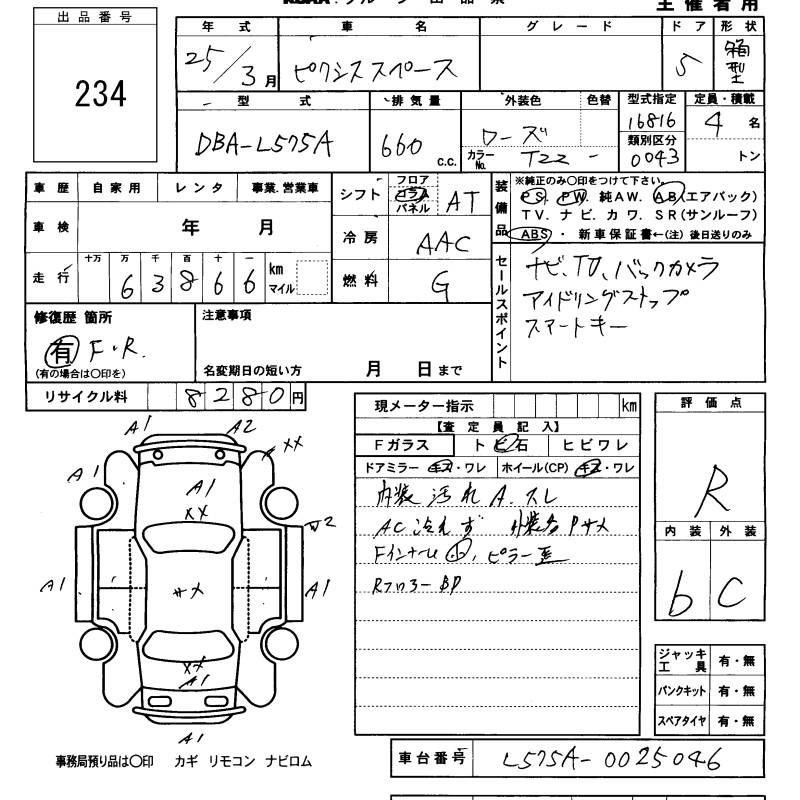 出品番号
234
主催者用
年式 車名 グレード ドア 形状
25/3月 ピクシススペース 5 箱型
型式 排気量 外装色 色替 型式指定 定員・積載
DBA-L575A 660 c.c. ローズ 16816 4名
類別区分
カラーNo. T22 - 0043 トン
車歴 自家用 レンタ 事業.営業車
車検 年 月
走行 十万 万 千 百 十 一 km マイル
6 3 8 6 6
シフト フロア コラム パネル AT
冷房 AAC
燃料 G
装備品
※純正のみ〇印をつけて下さい。
PS PW 純AW. AB(エアバック)
TV. ナビ. カワ. SR(サンルーフ)
ABS ・ 新車保証書←(注) 後日送りのみ
セールスポイント
ナビ、TV、バックカメラ
アイドリングストップ
スマートキー
修復歴 箇所
有 F・R.
(有の場合は〇印を)
注意事項
名変期日の短い方 月 日まで
リサイクル料 8280円
A1 A2
A1 XX
A1
XX
W2
A1 A1
XX
A1
A1
事務局預り品は〇印 カギ リモコン ナビロム
現メーター指示 km
【査定員記入】
Fガラス トビ石 ヒビワレ
ドアミラー キズ・ワレ ホイール(CP) キズ・ワレ
内装 汚れ A. スレ
AC 冷えず 外装各 Pサメ
Fインナー 小, ピラー歪
Rフロアー BP
評価点
R
内装 外装
b C
ジャッキ 工具 有・無
パンクキット 有・無
スペアタイヤ 有・無
車台番号 L575A-0025046